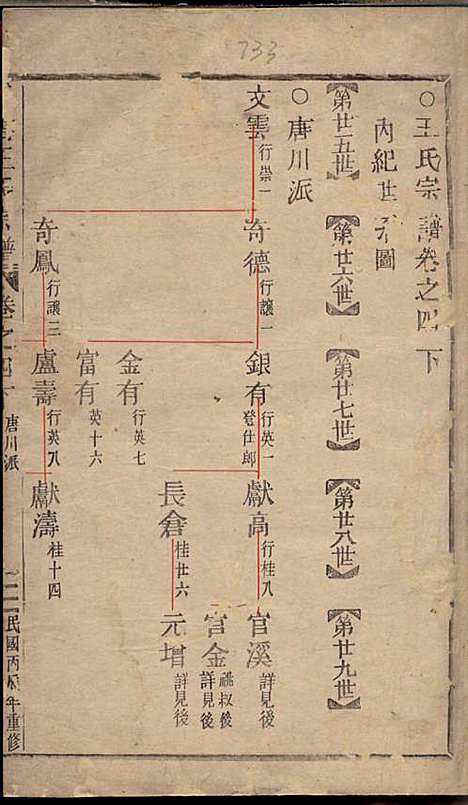 733
○王氏宗譜卷之四下
內紀世系圖
【第廿五世】【第廿六世】【第廿七世】【第廿八世】【第廿九世】
○唐川派
文雲 行崇一 奇德 行讓一 銀有 行英一 登仕郎 獻高 行桂八 官溪 詳見後
官金 祧叔後 詳見後
長倉 桂廿六 元增 詳見後
金有 行英七
富有 英十六
奇鳳 行讓三 盧壽 行英八 獻濤 桂十四
王氏宗譜 卷之四下 唐川派 民國丙辰年重修